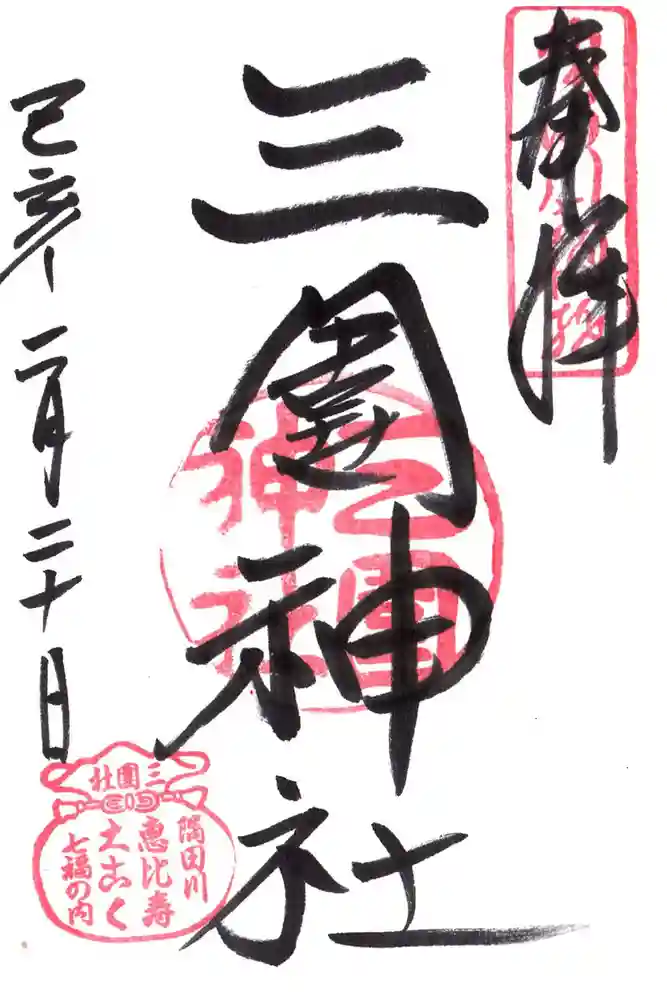 奉拝
三圍神社
己亥二月二十日
三圍神社
三圍社
隅田川
恵比壽
大こく
七福の内